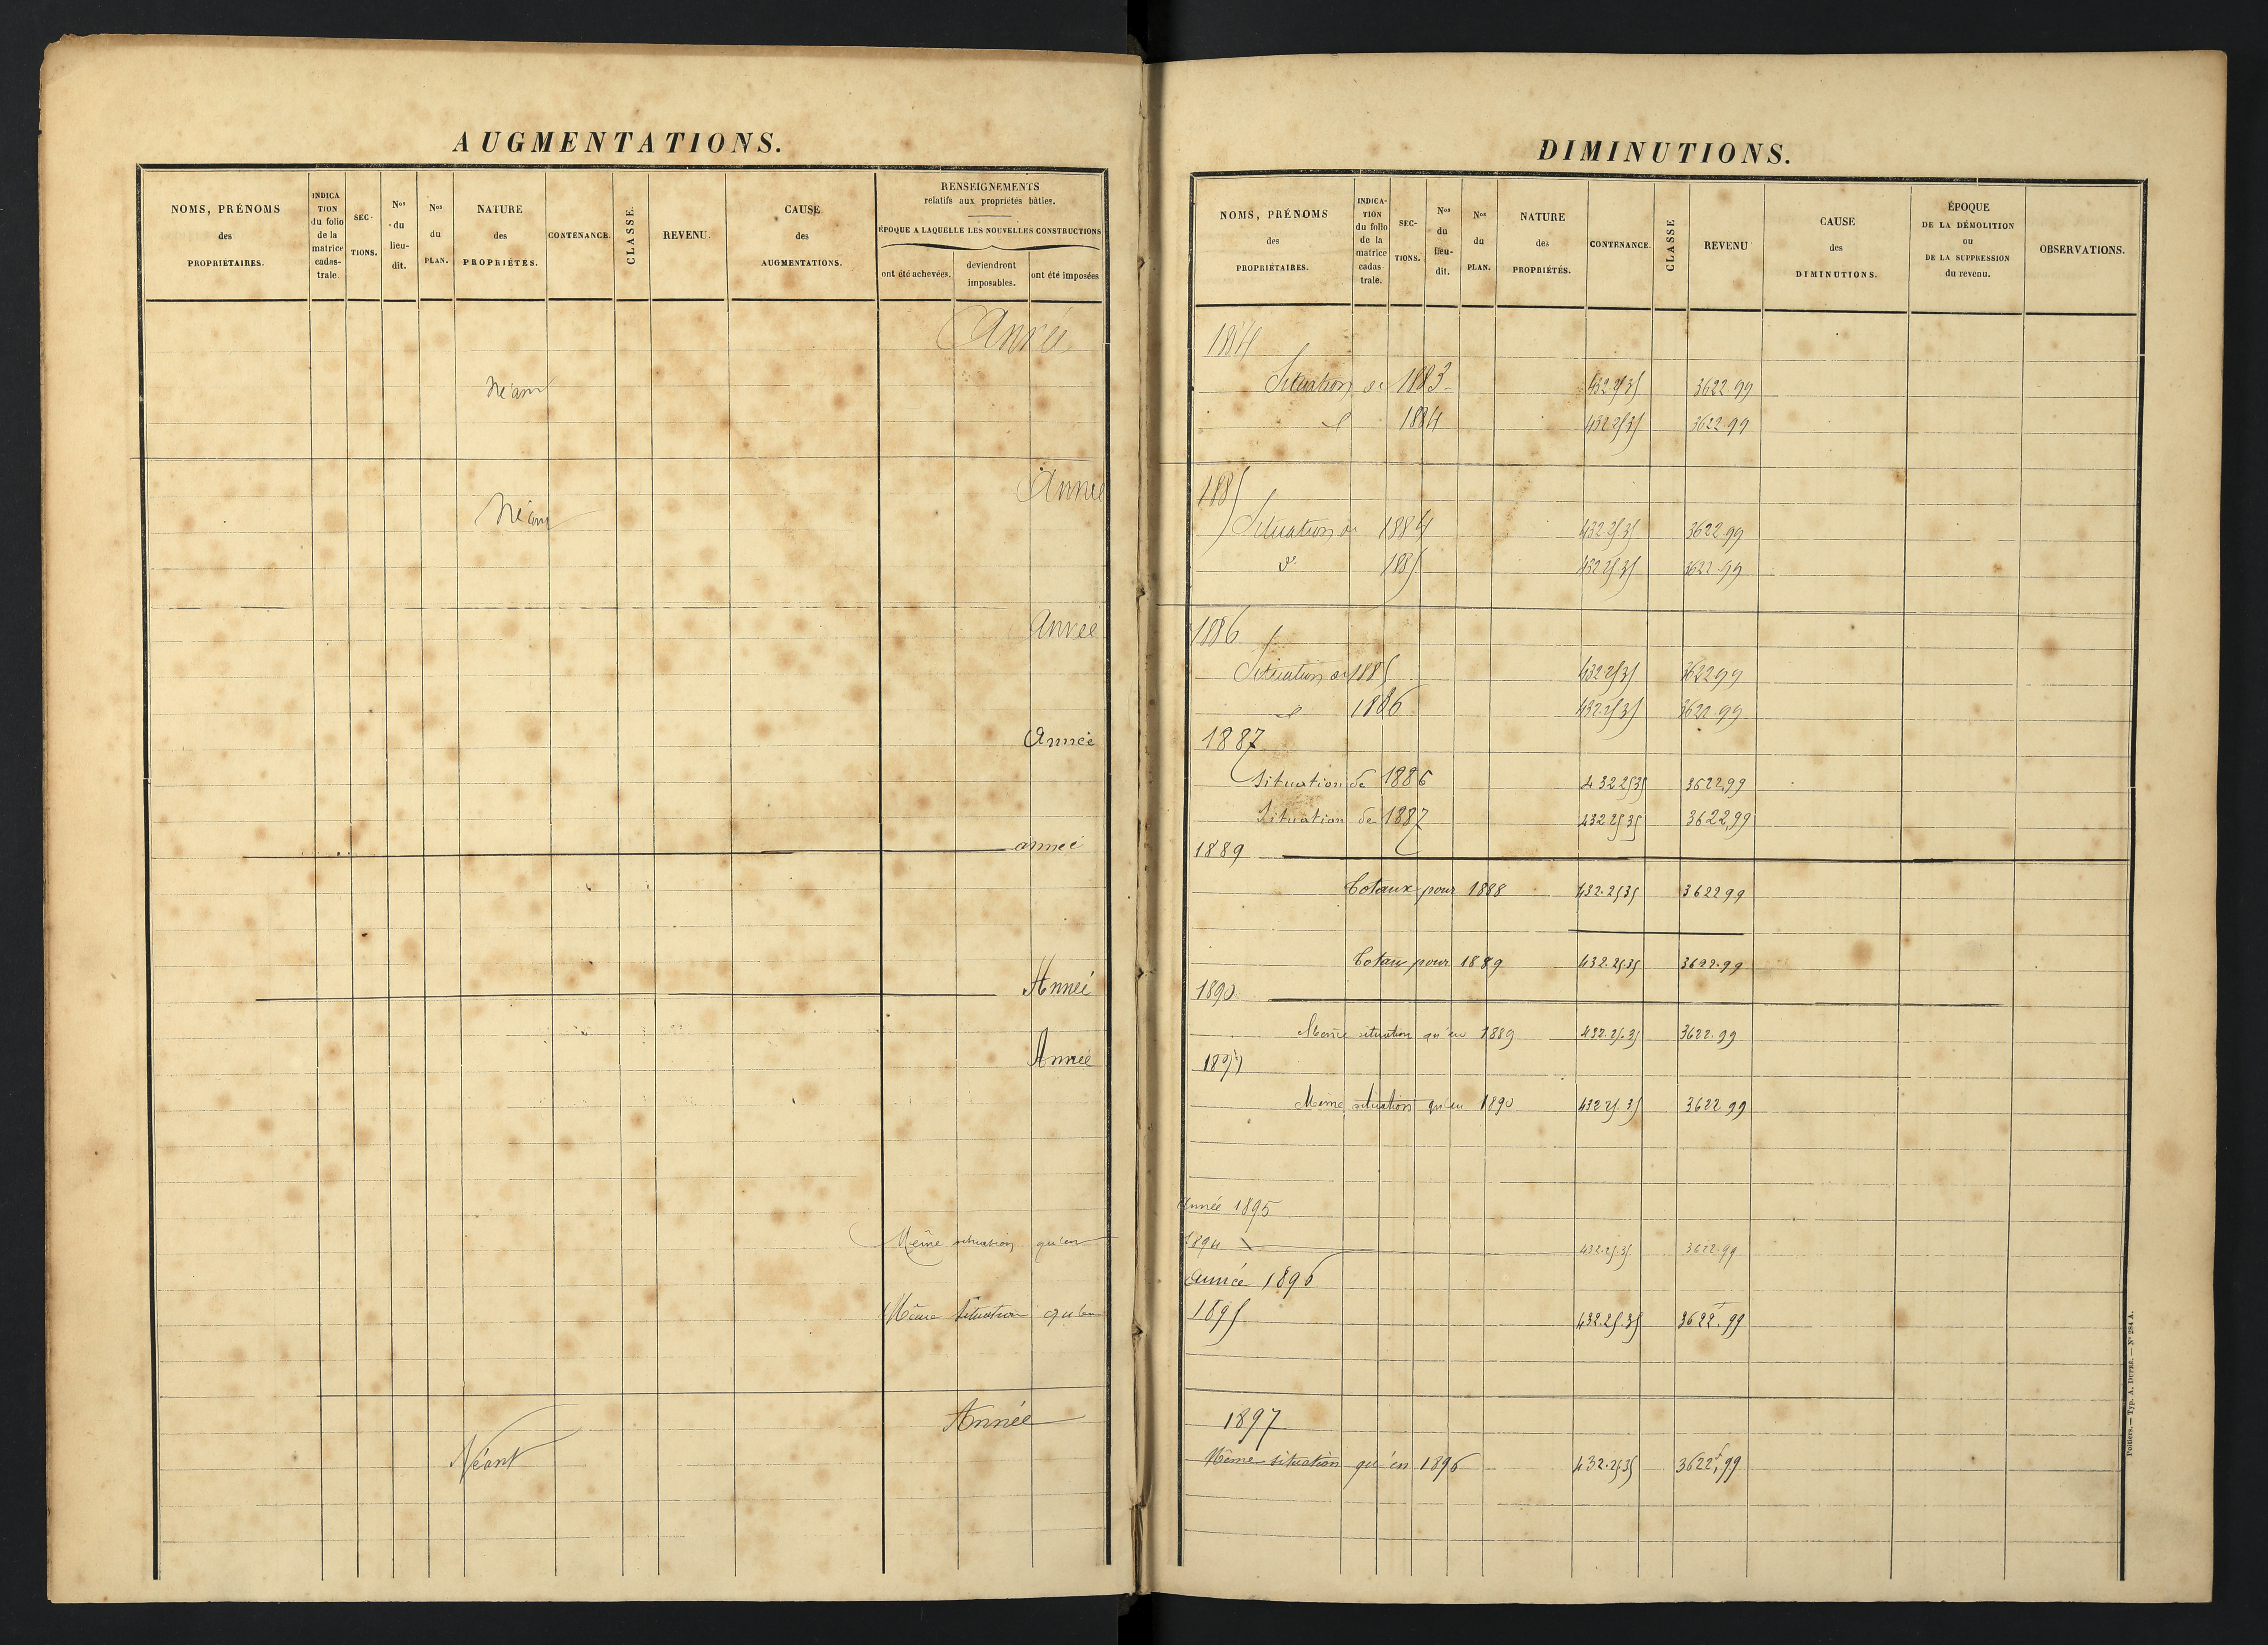 AUGMENTATIONS.
NOMS, PRÉNOMS
des
PROPRIÉTAIRES.
INDICA
TION
du folio
de la
matrice
cadas-
trale
SEC-
TIONS.
Nos
du
lieu-
dit.
Nos
du
PLAN.
NATURE
des
PROPRIÉTÉS.
CONTENANCE.
CLASSE.
REVENU.
CAUSE
des
AUGMENTATIONS.
RENSEIGNEMENTS
relatifs aux propriétés bâties.
ÉPOQUE A LAQUELLE LES NOUVELLES CONSTRUCTIONS
ont été achevées.
deviendront
imposables.
ont été imposées
Année
Néant
Année
Néant
Année
Année
année
Année
Année
Même situation qu'en
Même Situation qu'en
Année
Néant
DIMINUTIONS.
NOMS, PRÉNOMS
des
PROPRIÉTAIRES.
INDICA-
TION
du folio
de la
matrice
cadas
trale.
SEC-
TIONS.
Nos
du
lieu-
dit.
Nos
du
PLAN.
NATURE
des
PROPRIÉTÉS.
CONTENANCE.
CLASSE
REVENU
CAUSE
des
DIMINUTIONS.
ÉPOQUE
DE LA DÉMOLITION
ou
DE LA SUPPRESSION
du revenu.
OBSERVATIONS.
1884
Situation de 1883 432 25 35 3622 99
d° 1884 432 25 35 3622 99
1885
Situation de 1884 432 25 35 3622 99
d° 1885 432 25 35 3622.99
1886
Situation de 1885 432 25 35 3622 99
d° 1886 432.25 35 3622.99
1887
Situation de 1886 432 25 35 3622,99
Situation de 1887 432 25 35 3622,99
1889
Totaux pour 1888 432.25 35 3622 99
Totaux pour 1889 432.25.35 3622.99
1890
Même situation qu'en 1889 432.25.35 3622.99
Même situation qu'en 1890 432 25.35 3622 99
Année 1895
1894 432.25.35 3622.99
Année 1896
1895 432.25.35 3622f.99
1897
Même situation qu'en 1896 432.25.35 3622f,99
Poitiers. — Typ. A. DUPRÉ. — N° 284 A.